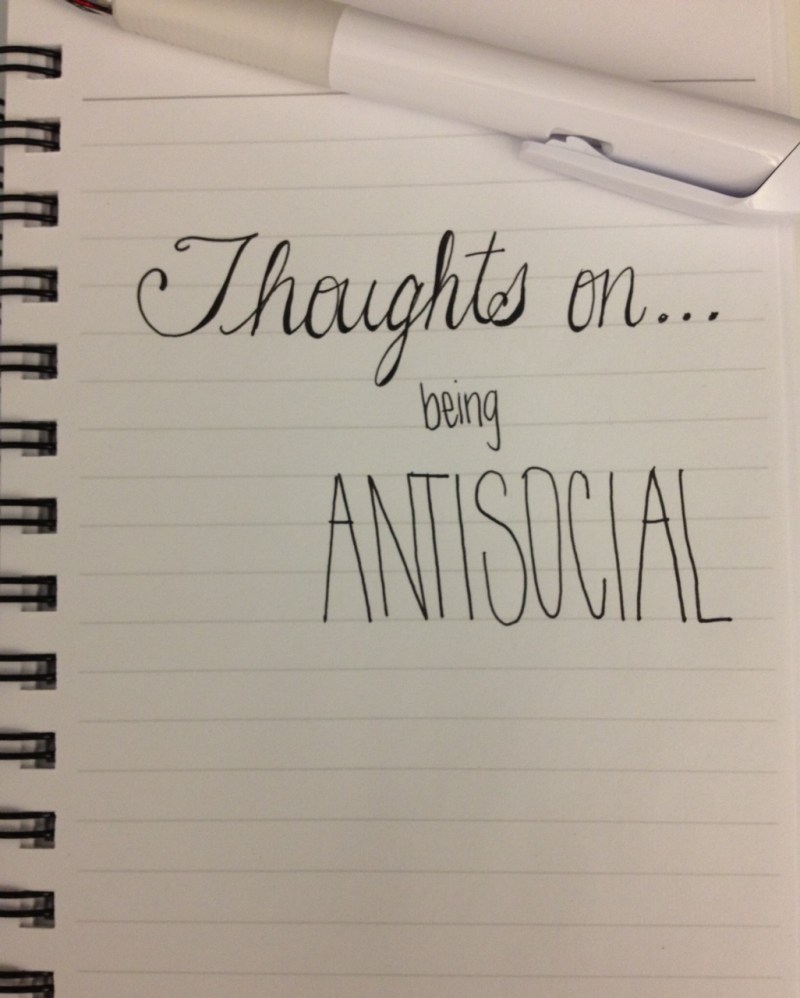 Thoughts on...
being
ANTISOCIAL